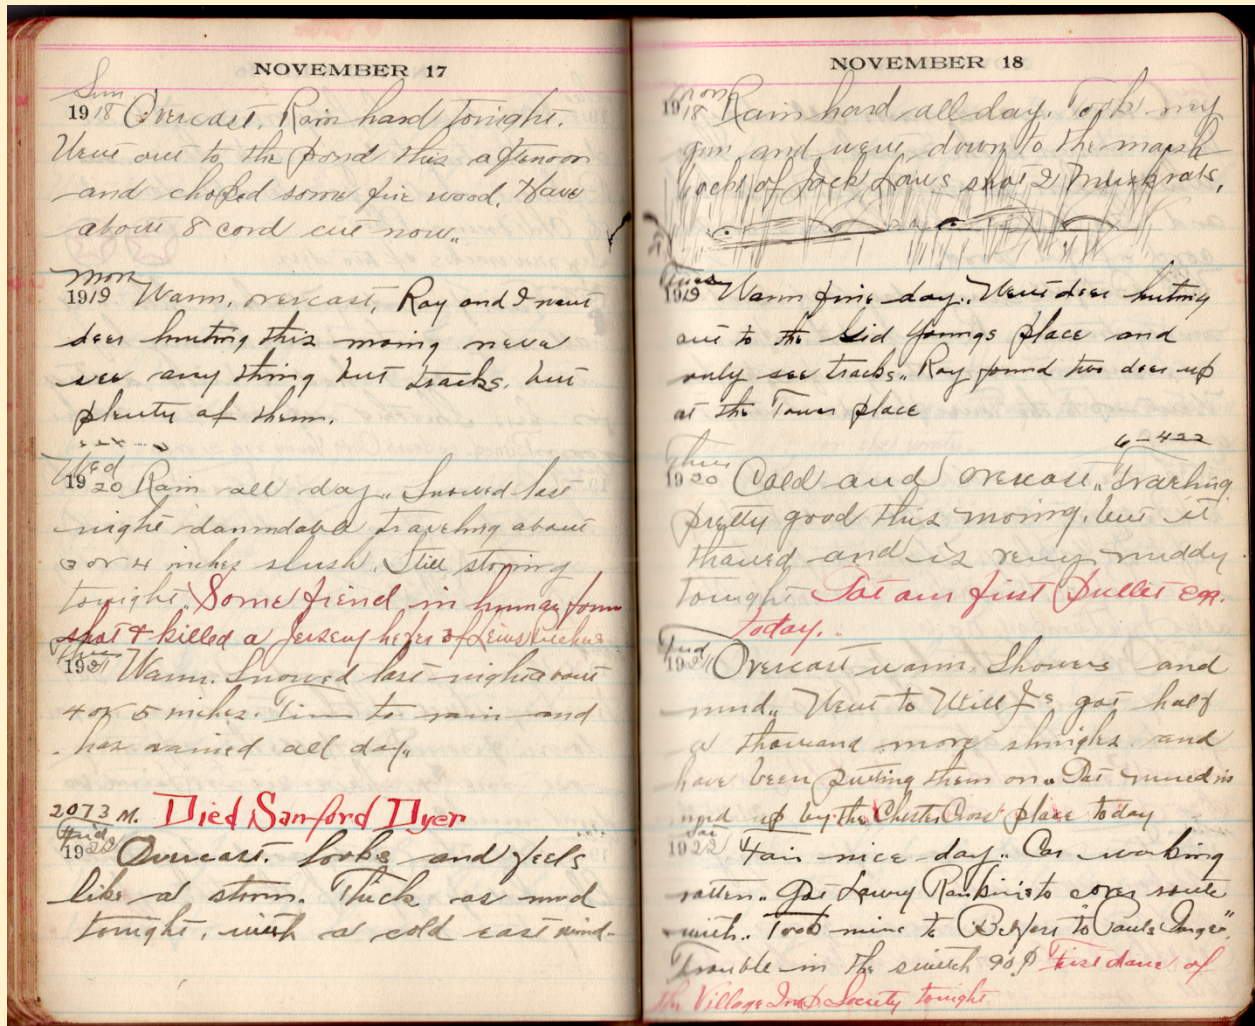 NOVEMBER 17
Sun
1918 Overcast. Rain hard tonight.
Went out to the pond this afternoon
and choped some fire wood. Have
about 8 cord cut now..
Mon
1919 Warm, overcast, Ray and I went
deer hunting this moring neve
see any thing but tracks. but
plenty of them.
Wed
1920 Rain all day.. Snowed last
night traveling about
3 or 4 inches slush. Still storing
tonight. Some fiend in human form
shot & killed a Jersey hefer of Lewis
Thur
1921 Warm. Snowed last night about
4 or 5 inches. to rain and
has rained all day..
2073 M. Died Sanford Dyer
Frid
1922 Overcast. looks and feels
like a storm. Thick as mud
tonight, with a cold east wind.
NOVEMBER 18
Mon
1918 Rain hard all day. Took my
gun and went down to the marsh
back of Jack Lows shot 2 Muskrats.
Tues
1919 Warm fine day.. Went deer hunting
out to the Gid Youngs place and
only see tracks.. Ray found two deer up
at the Tower place
6-422
Thur
1920 Cold and overcast.. Traveling
pretty good this moring, but it
thawed and is very muddy
tonight Got our first pullet egg.
today..
Frid
1921 Overcast warm. Showers and
mud.. Went to Will Js got half
a thousand more shingles and
have been putting them on. Got mired in
mud up by the Chester Cross place today
Sat
1922 Fair nice day.. Car working
rotten.. Got Lawry Rankins to cover route
with.. Took mine to Belfast to Pauls Garge".
Trouble in the switch 90¢ First dance of
the Village Imp Society tonight